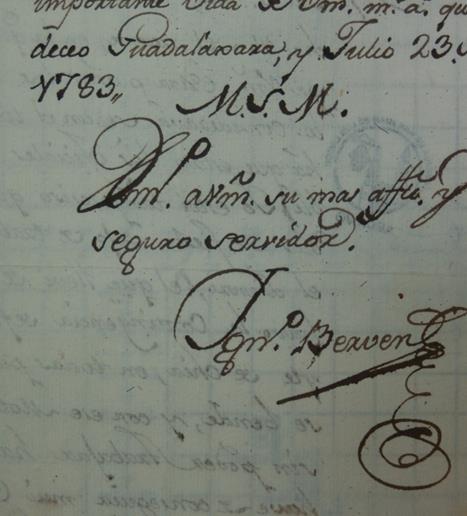 importante vida de Vm. m.s a.s que
deceo Guadalaxara, y Julio 23. d
1783,,
M. S. M.
B.l m. a Vm. su mas affto. y
seguro servidor.
Ygn.o Berven